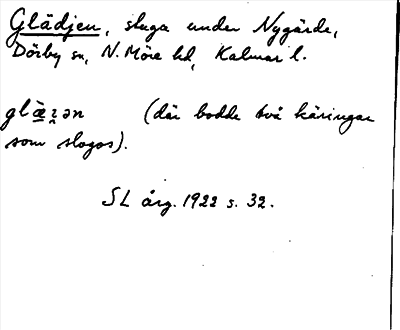 Glädjen, stuga under Nygärde,
Dörby sn, N. Möre hd, Kalmar l.
(där bodde två käringar
som slogos).
SL årg. 1922 s. 32.